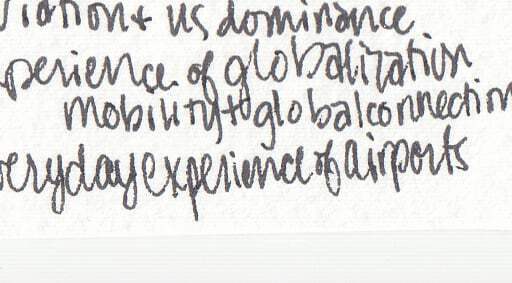 viation + us dominance
perience of globalization
mobility + global connection
veryday experience of airports